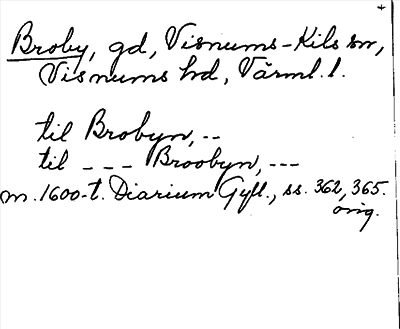 Broby, gd, Visnums-Kils sn,
Visnums hd, Värml. l.
til Brobyn, --
til --- Broobyn, ---
m. 1600-t. Diarium Gyll., ss. 362, 365.
orig.